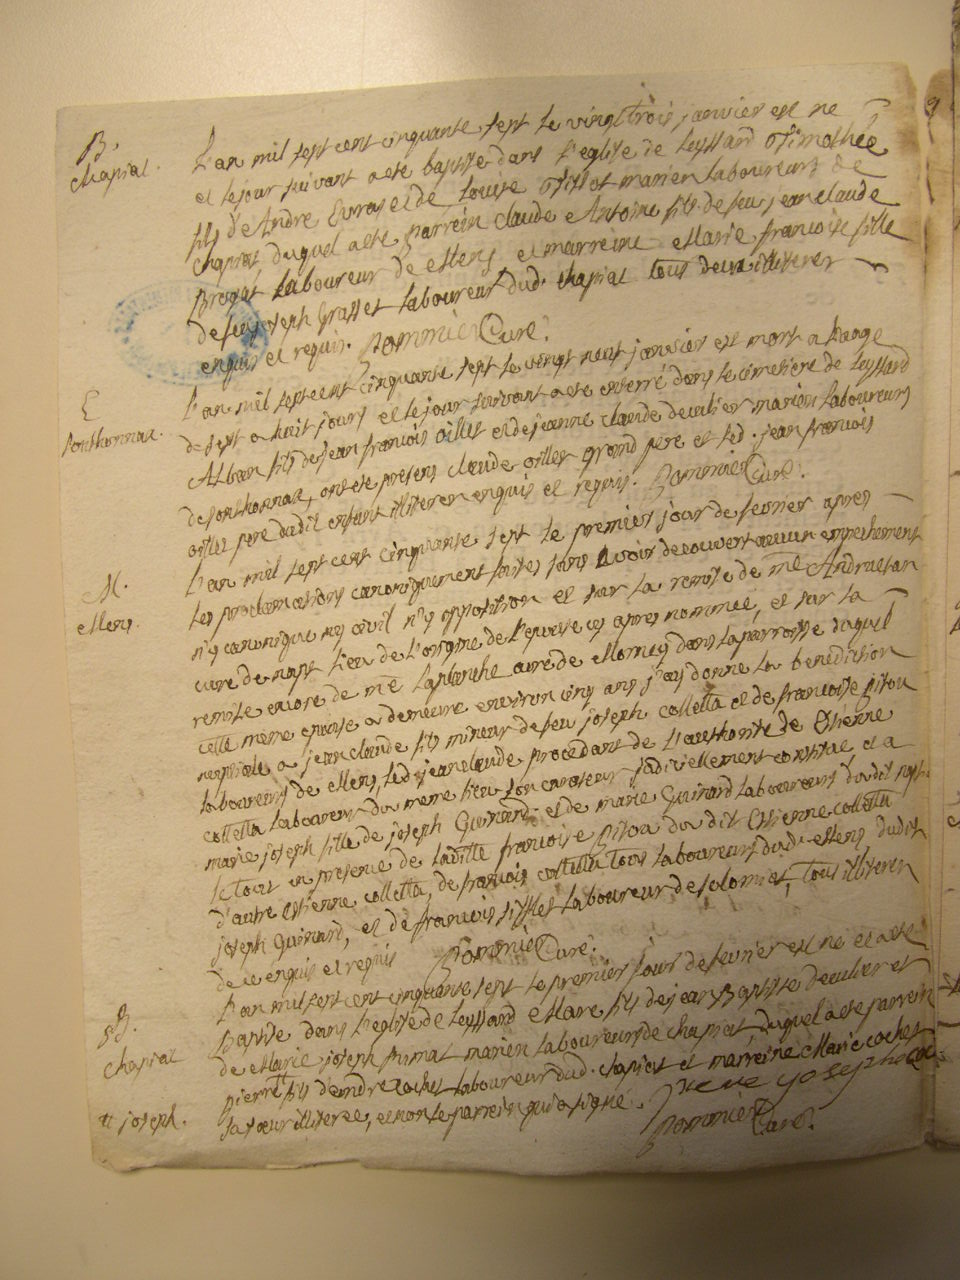 B.
chapiat.
L'an mil sept cent cinquante sept le vingt trois janvier est ne
et le jour suivant a ete baptise dans l'eglise de Leyssard Thimothée
fils d'Andre Evras et de Louise mariés laboureurs de
chapiat duquel a ete parrein claude Antoine fils de feu jean claude
laboureur de Mens et marreine Marie francoise fille
de feu joseph Grasset laboureur dud. chapiat tous deux illiteres
enquis et requis. Pommier Curé.
E
Solthonnax.
L'an mil sept cent cinquante sept le vingt neuf janvier est mort a l'aage
de sept a huit jours et le jour suivant a ete enterré dans le cimetiere de Leyssard
Alban fils de jean francois oillet et de jeanne claude mariés laboureurs
de Solthonnax, ont ete presens claude oillet grand pere et led. jean francois
oillet pere dudit enfant illiteres enquis et requis. Pommier Curé.
M.
Mens.
L'an mil sept cent cinquante sept le premier jour de fevrier apres
les proclamations canoniquement faites sans avoir decouvert aucun empechement
n'y canonique n'y civil n'y opposition et sur la remise de mre
cure de napt lieu de l'origine de l'epouse cy apres nommée, et sur la
remise encore de mre Laplanche cure de Mornay dans la parroisse duquel
cette meme epouse a demeure environ cinq ans j'ay donne la benediction
nuptiale a jean claude fils mineur de feu joseph colletta et de francoise pitou
laboureurs de Mens, led. jean claude procedant de l'authorité de Etienne
colletta laboureur du meme lieu son curateur judiciellement constitué et a
marie joseph fille de joseph Guinard et de marie Guinard laboureurs dudit napt.
le tout en presence de francoise pitou du dit Estienne colletta
d'autre Etienne colletta, de francois colletta tous laboureurs dud. Mens dudit
joseph Guinard, et de francois laboureur de solomiat, tous illiteres
de ce enquis et requis Pommier Curé.
B.
chapiat
L'an mil sept cent cinquante sept le premier jour de fevrier est ne et a ete
baptise dans l'eglise de Leyssard Marc fils de jean Baptiste et
de Marie joseph primat mariés laboureurs de chapiat duquel a ete parrein
pierre # fils d'andre cochet laboureur dud. chapiat et marreine Marie cochet
sa sœur illiteree, et non le parrein qui a signé. Piere yosephe
# joseph.
Pommier Curé.